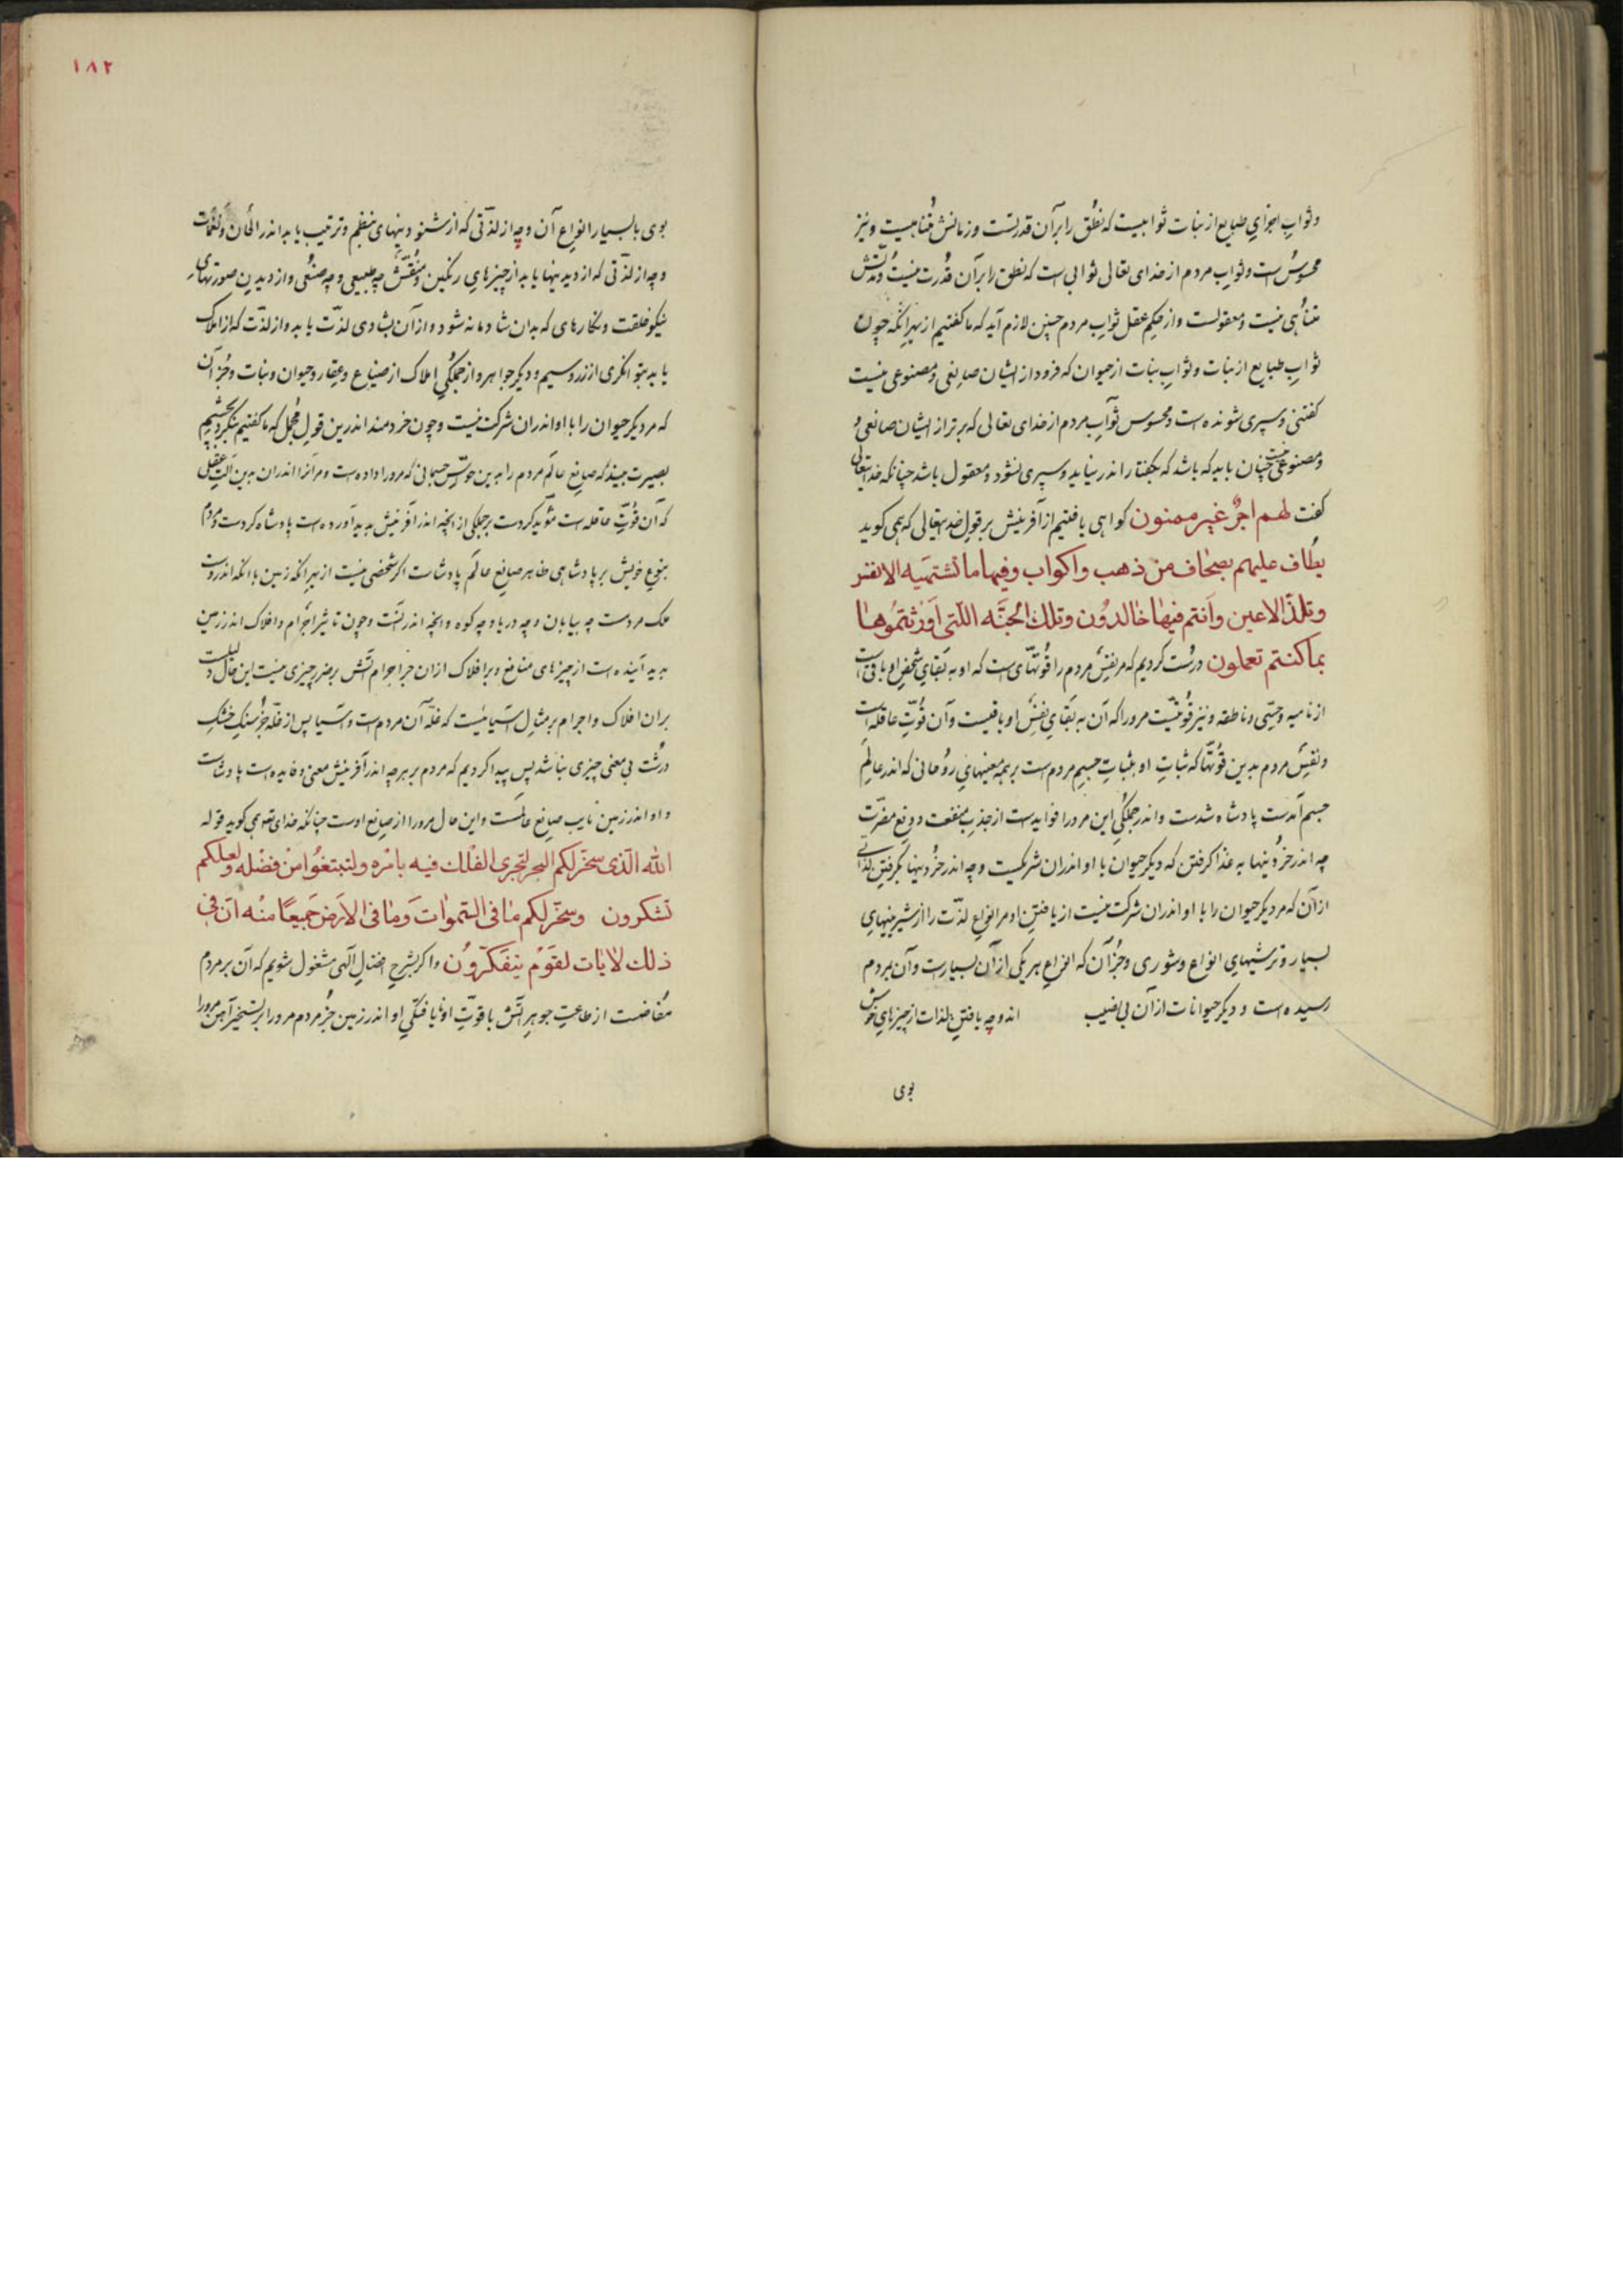 وثواب اجزای طبایع از نبات ثوابیست که نطق را بر آن قدرتست و زمانش متناهیست و نیز
محسوس است و ثواب مردم از خدای تعالی ثوابی است که نطق را بر آن قدرت نیست و مدتش
متناهی نیست و معقولست و از حکم عقل ثواب مردم چنین لازم آید که ما کفتیم از بهر انکه چون
ثواب طبایع از نبات و ثواب نبات از حیوان که فرود از ایشان صانعی و مصنوعی نیست
کفتنی و سپری شونده است و محسوس ثواب مردم از خدای تعالی که برتر از ایشان صانعی و
و مصنوعی نیست چنان باید که باشد که بکفتار اندر نیاید و سپری نشود و معقول باشد چنانکه خدایتعالی
کفت لهم اجر غیر ممنون کواهی یافتیم از آفرینش بر قول خدایتعالی که همی کوید
یطاف علیهم بصحاف من ذهب واکواب وفیها ما تشتهیه الانفس
وتلذ الاعین وانتم فیها خالدون وتلك الجنه اللتی اورثتموها
بما کنتم تعملون درست کردیم که مر نفس مردم را قوتهائی است که او به بقای شخص او باقی است
از نامیه و حسی و ناطقه و نیز قوتیست مرورا که آن به بقای نفس او باقیست و آن قوت عاقله است
و نفس مردم بدین قوتها که ثبات او بثبات جسم مردم است بر همه معنیهای روحانی که اندر عالم
جسم آمدست پادشاه شدست و اندر جملکی این مرورا فوایدست از جذب منفعت و دفع مضرت
چه اندر خوردنیها به غذا کرفتن که دیکر حیوان با او اندران شریکست و چه اندر خوردنیها بکرفتن لذاتی
از آن که مر دیکر حیوان را با او اندران شرکت نیست از یافتن او مر انواع لذت را از شیرینیهای
بسیار و ترشیهای انواع و شوری و جز آن که انواع هر یکی از آن بسیارست و آن بمردم
رسیده است و دیکر حیوانات از آن بی نصیب اند و چه یافتن لذات از چیزهای خوش
بوی
۱۸۲
بوی با بسیار انواع آن و چه از لذتی که از شنودنیهای منظم و ترتیب یابد اندر الحان و نغمات
و چه از لذتی که از دیدنیها یابد از چیزهای رنکین و منقش چه طبیعی و چه صنعی و از دیدن صورتهای
نیکو خلقت و نکارهای که بدان شادمانه شود و از آن بشادی لذت یابد و از لذت که از املاک
یابد بتوانکری از زر و سیم و دیکر جواهر و از جملکی املاک از ضیاع و عقار و حیوان و نبات و جز آن
که مر دیکر حیوان را با او اندران شرکت نیست و چون خردمند اندرین قول مجمل که ما کفتیم بنکرد بچشم
بصیرت ببیند که صانع عالم مردم را بدین حواس جسمانی که مرورا داده است و مر انرا اندران بدین آلت عقلی
که آن قوت عاقله است مؤید کردست بر جملکی از انچه اندر آفرینش پدید آورده است پادشاه کردست و مردم
بنوع خویش بر پادشاهی ظاهر صانع عالم پادشاست اکر شخصی نیست از بهر انکه زمین با انکه اندروست
ملک مردست چه بیابان و چه دریا و چه کوه و انچه اندر تست و چون تاثیر اجرام و افلاک اندر زمین
پدید آینده است از چیزهای منافع و بر افلاک از ان جز اجرام آتش بر ضرر چیزی نیست این حال دلیلست
بران افلاک و اجرام بر مثال آسیائیست که غله آن مردم است و آسیا پس از غله جز سنک خشک
درشت بی معنی چیزی نباشد پس پیدا کردیم که مردم بر هر چه اندر آفرینش معنی و فایده است پادشاست
و او اندر زمین نایب صانع عالمست و این حال مرورا از صانع اوست چنانکه خدای تع همی کوید قوله
الله الذی سخر لکم البحر لتجری الفلك فیه بامره ولتبتغوا من فضله ولعلکم
تشکرون وسخر لکم ما فی السموات وما فی الارض جمیعا منه ان فی
ذلك لایات لقوم یتفکرون و اکر بشرح افضال آلهی مشغول شویم که آن بر مردم
مفاضست از طاعت جوهر آتش با قوت او نایافتکی او اندر زمین جز مردم مرورا بر تسخیر آهن مرورا